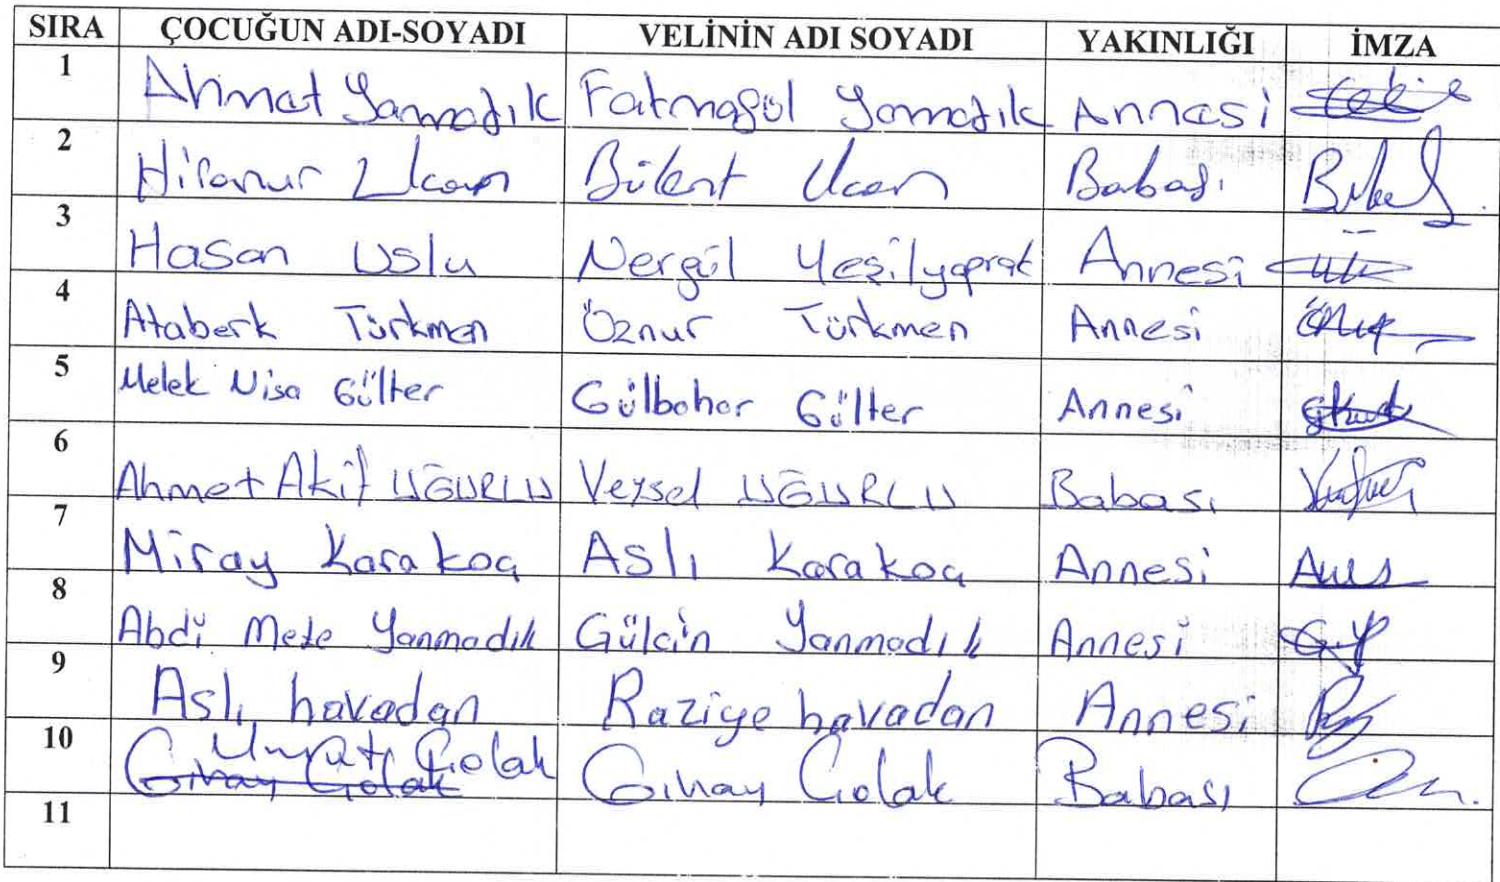 SIRA ÇOCUĞUN ADI-SOYADI VELİNİN ADI SOYADI YAKINLIĞI İMZA
1 Ahmet Yanmadık Fatmagül Yanmadık Annesi
2 Hiranur Ucan Bülent Ucan Babası
3 Hasan Uslu Nergül Yeşilyaprak Annesi
4 Ataberk Türkmen Öznur Türkmen Annesi
5 Melek Nisa Gülter Gülbahar Gülter Annesi
6 Ahmet Akif UĞURLU Veysel UĞURLU Babası
7 Miray Karakoç Aslı Karakoç Annesi
8 Abdi Mete Yanmadık Gülcin Yanmadık Annesi
9 Aslı havadan Raziye havadan Annesi
10 Çolak Giray Çolak Babası
11